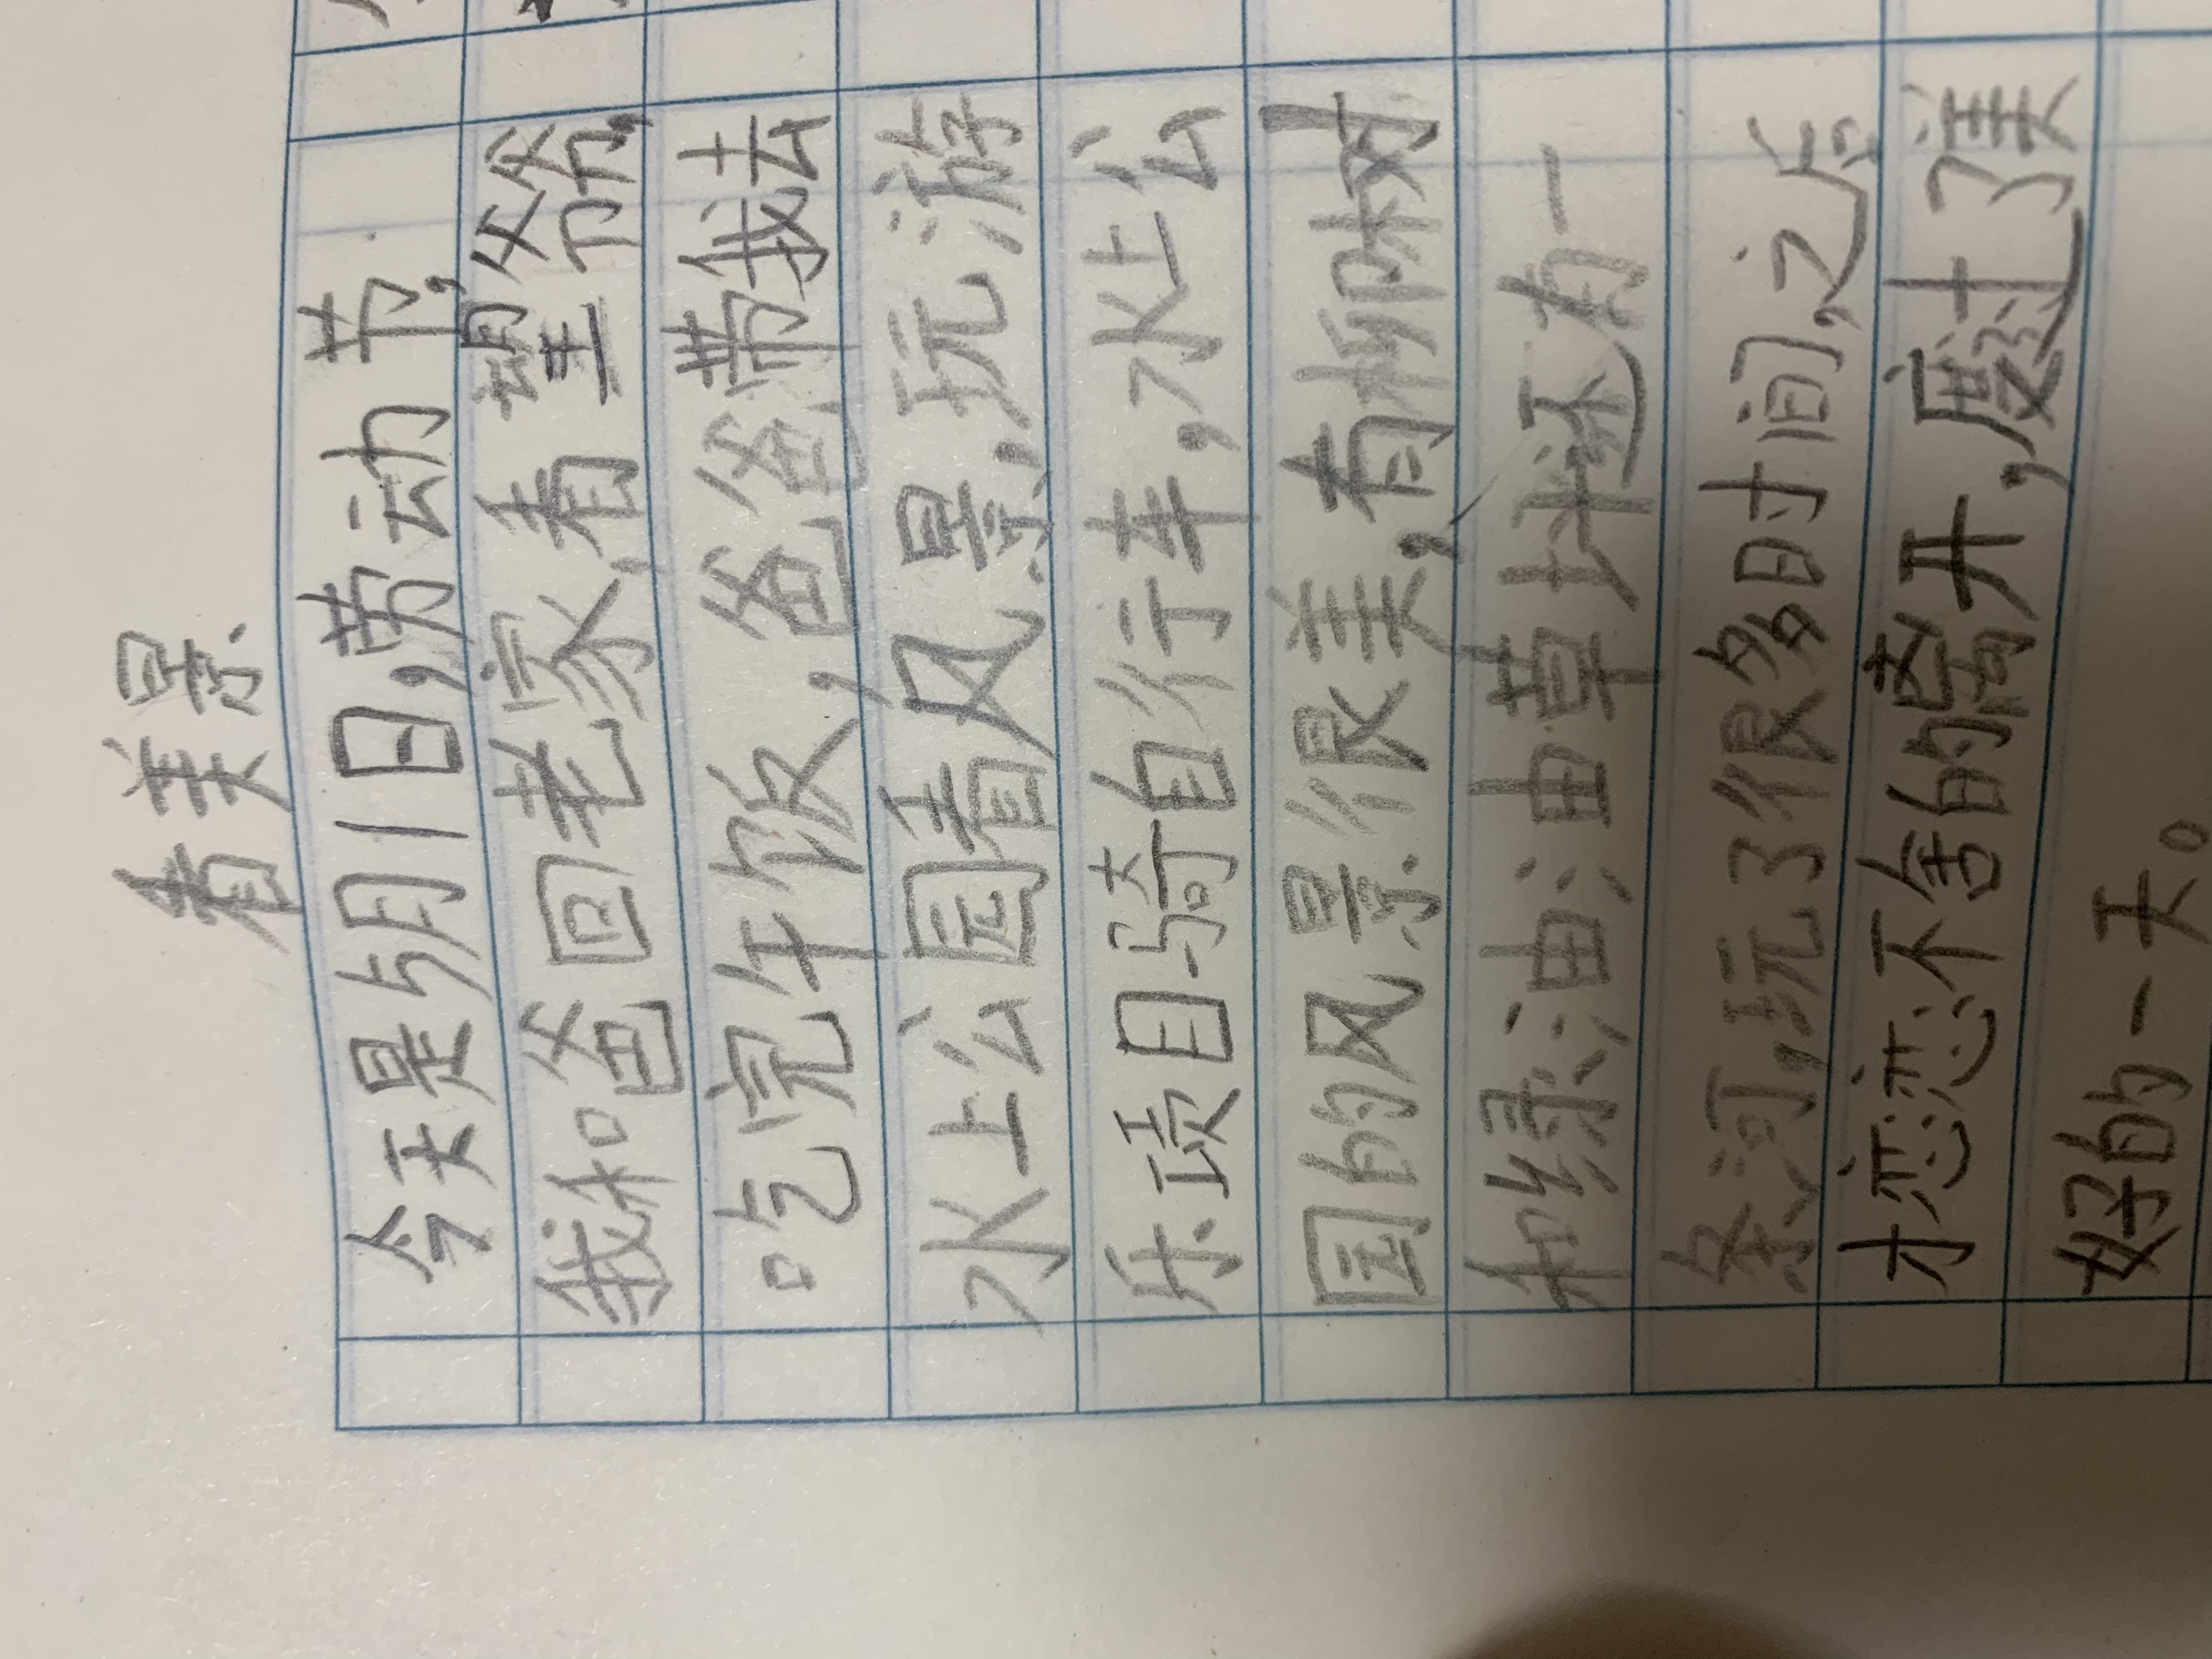 看美景
今天是5月1日,劳动节,
我和爸回老家,看望爷爷,
吃完午饭,爸爸带我去
水上公园看风景,玩游
乐项目骑自行车,水上公
园的风景很美,有柳树
和绿油油草坪还有一
条河,玩了很多时间,之后
才恋恋不舍的离开,度过了美
好的一天。